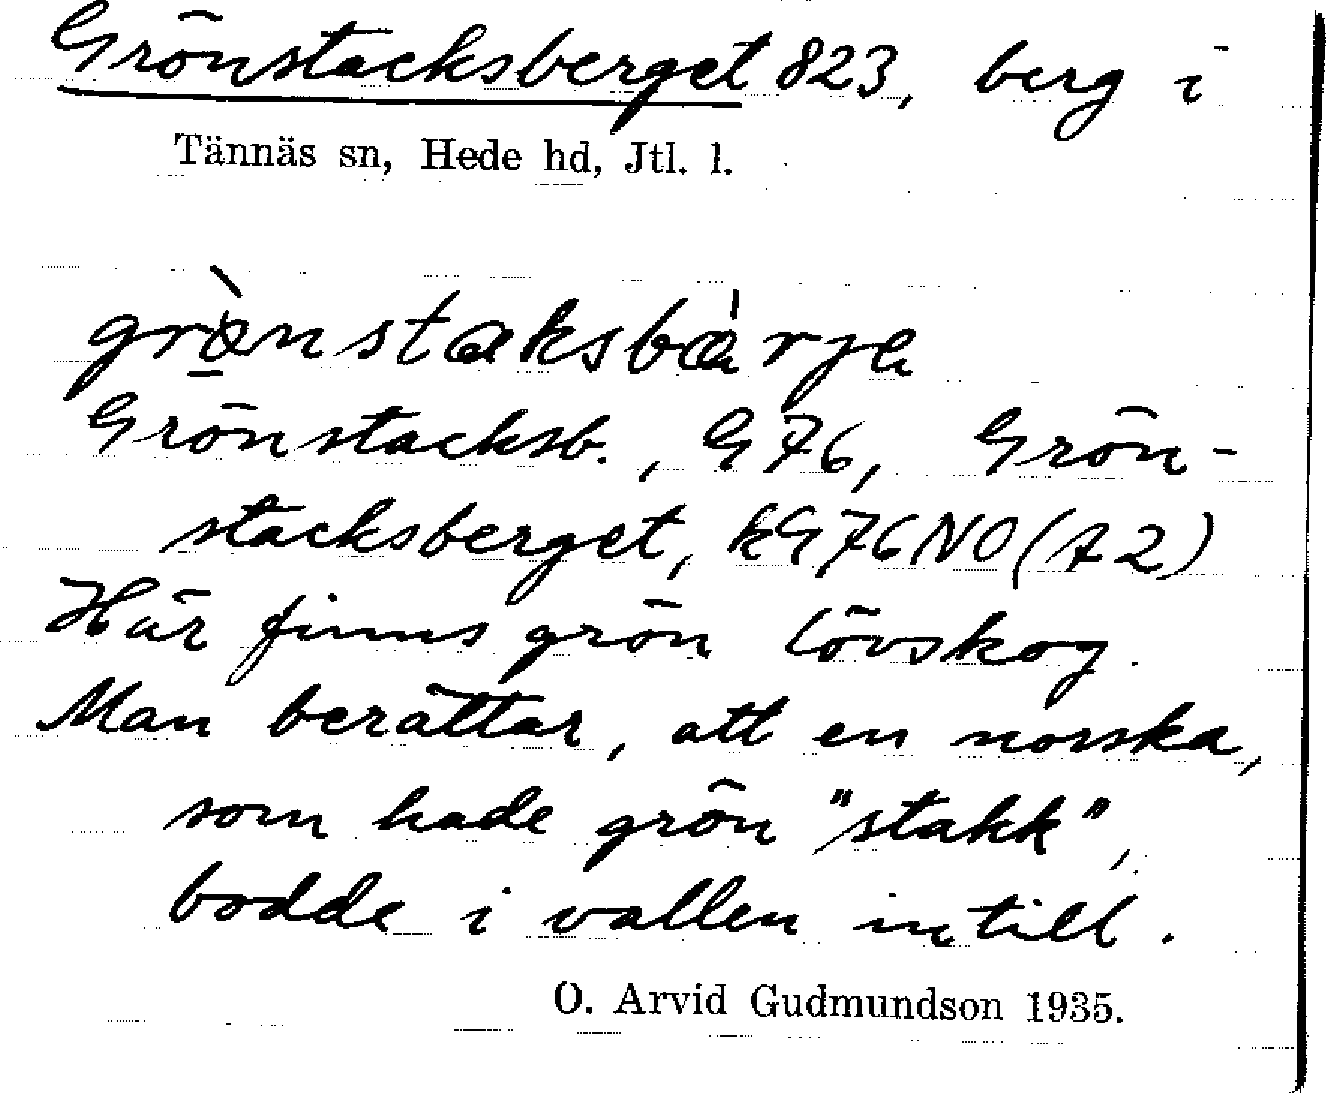 Grönstacksberget 823, berg i
Tännäs sn, Hede hd, Jtl. l.
grö̀nstaksbàrjə
Grönstacksb., G76, Grön-
stacksberget, kG76NO (A2)
Här finns grön lövskog.
Man berättar, att en norska,
som hade grön "stakk",
bodde i vallen intill.
O. Arvid Gudmundson 1935.